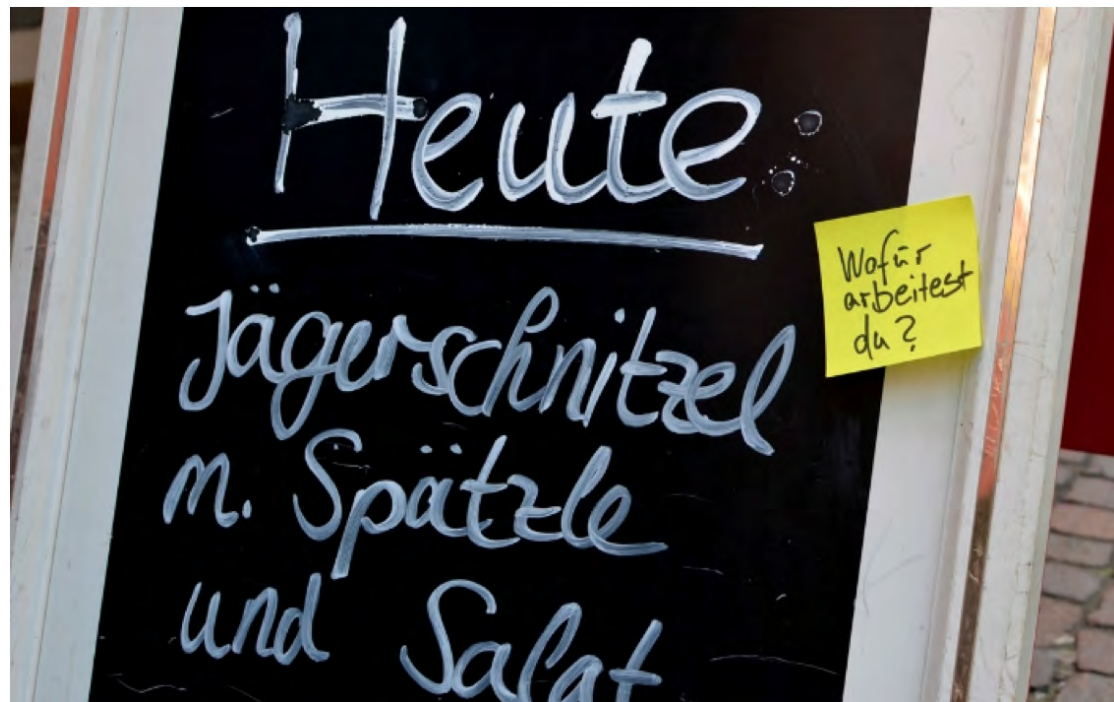 Heute:
Jägerschnitzel
m. Spätzle
und Salat
Wofür
arbeitest
du?